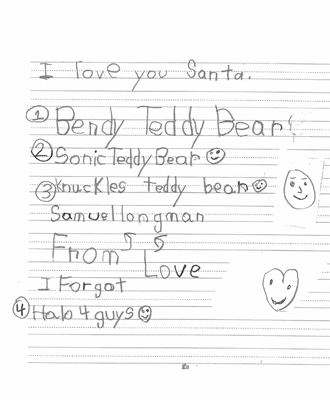 I love you Santa.
1 Bendy Teddy Bear!
2 Sonic Teddy Bear
3 Knuckles teddy bear
Samuel longman
From Love
I Forgot
4 Halo 4 guys